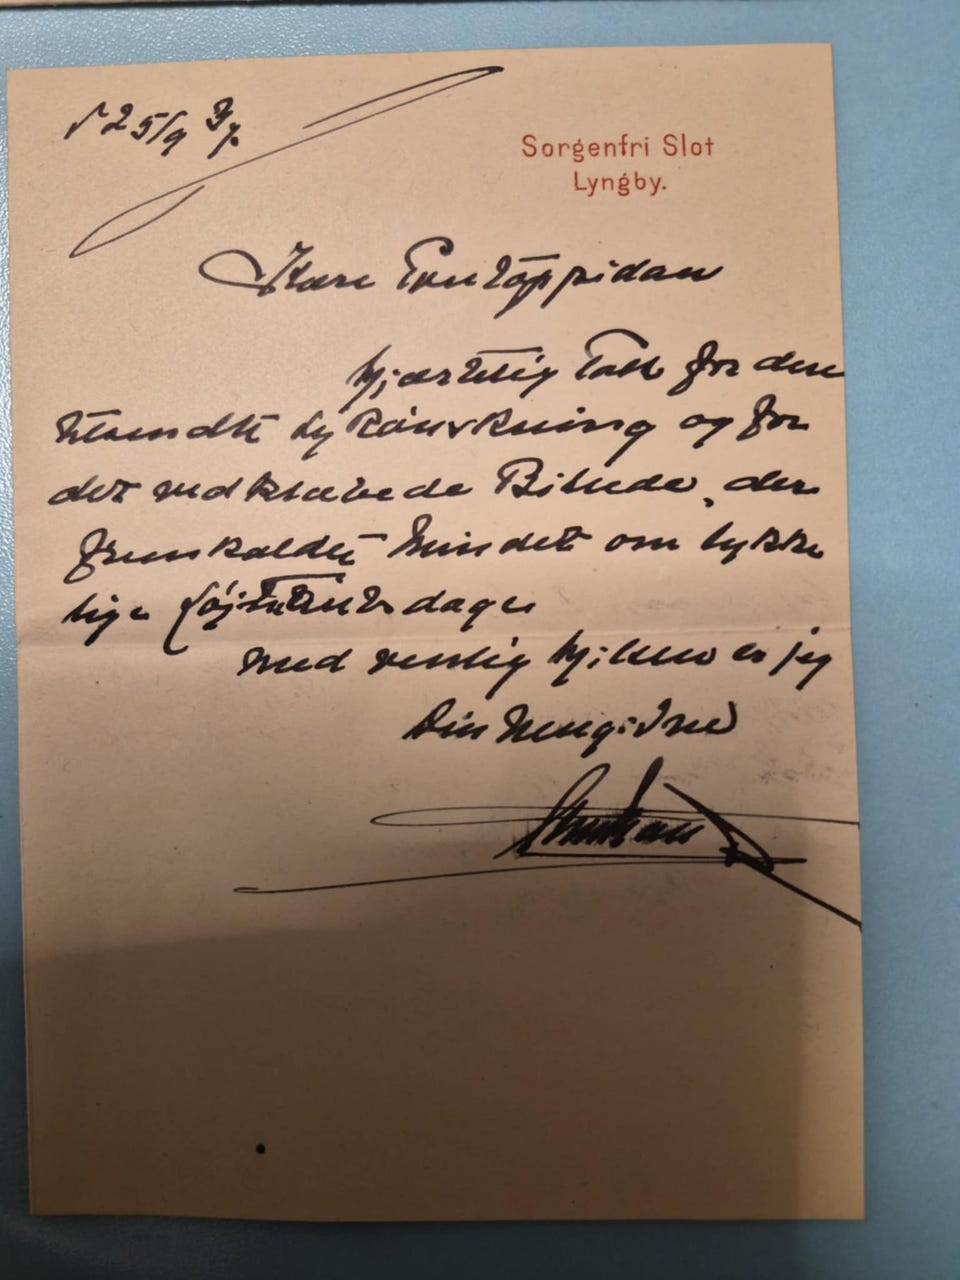 d 25/9 37.
Sorgenfri Slot
Lyngby.
Kære Fru Toppidan
hjærtelig Tak for den
tilsendte Lykønskning og for
det vedklæbede Billede, der
fremkaldte Mindet om lykke
lige Løjtnantsdage
med venlig hilsen er jeg
Din hengivne